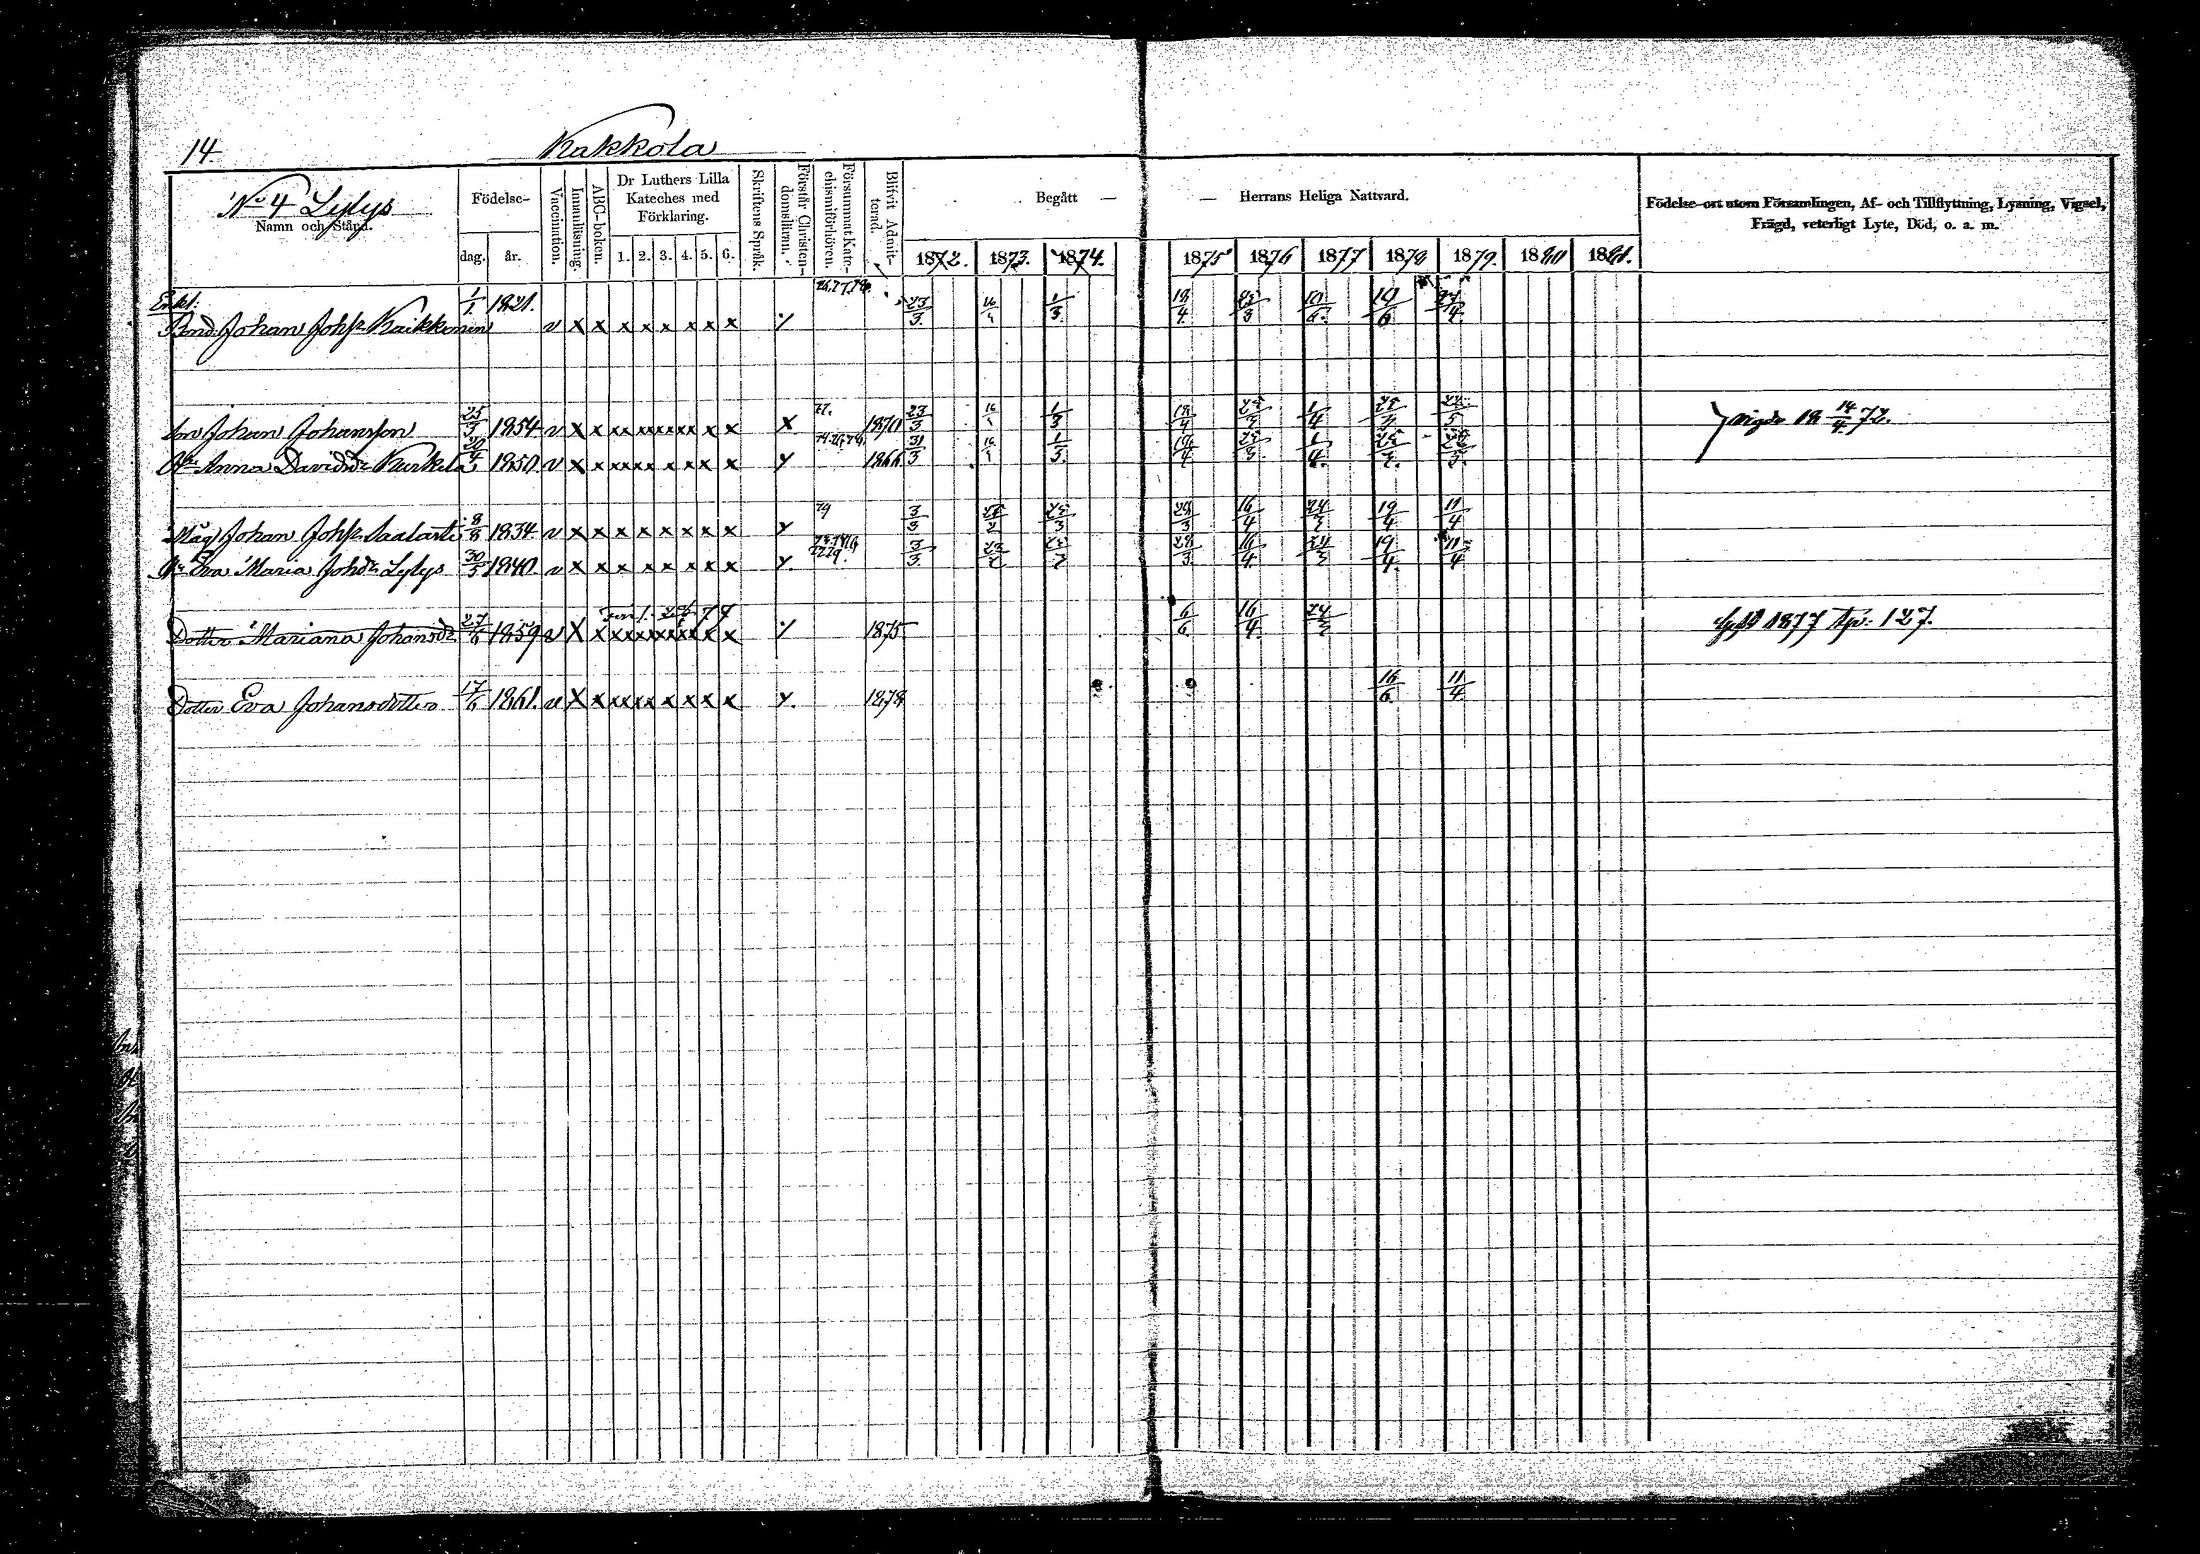 14.
Kakkola
No 4 Lylys
Namn och Stånd.
Födelse-
dag.
år.
Vaccination.
Innanläsning.
ABC-boken.
Dr Luthers Lilla
Kateches med
Förklaring.
1. 2. 3. 4. 5. 6.
Skriftens Språk.
Förstår Christen-
domsläran.
Försummat Kate-
chismiförhören.
Blifvit Admit-
terad.
Begått —
— Herrans Heliga Nattvard.
1872. 1873. 1874. 1875 1876 1877 1878 1879. 1880 1881.
Födelse-ort utom Församlingen, Af- och Tillflyttning, Lysning, Vigsel,
Frägd, veterligt Lyte, Död, o. a. m.
Enkl:
Bond. Johan Johss Kaikkonin 1/1. 1821. v x x x x x x x x 23/3. 1/3. 18/4. 25/3 19/6
Son Johan Johansson 25/3 1854 v x x x 77. 1870 23/3 1/3 18/4 25/3 1/4 vigde 18 14/4 72.
Hu Anna Davidsdr Kurkela 1850 v x x y 1866 31/3 1/3. 18/4 25/3 1/4.
Måg Johan Johss Saalasti 8/8 1834 v x x x x x x x x y 79 3/3 25/3 28/3 16/4 24/3 19/4 11/4
Hu Eva Maria Johdr Lylys 30/3 1840. v x x x x x x x x y. 3/3. 28/3. 16/4. 24/3 19/4. 11/4
Dotter Mariana Johansdr 27/6 1859 v x x 1875 6/6. 16/4. 24/3 1877 p. 127.
Dotter Eva Johansdotter 17/6 1861. v x x y. 1878 16/6. 11/4.